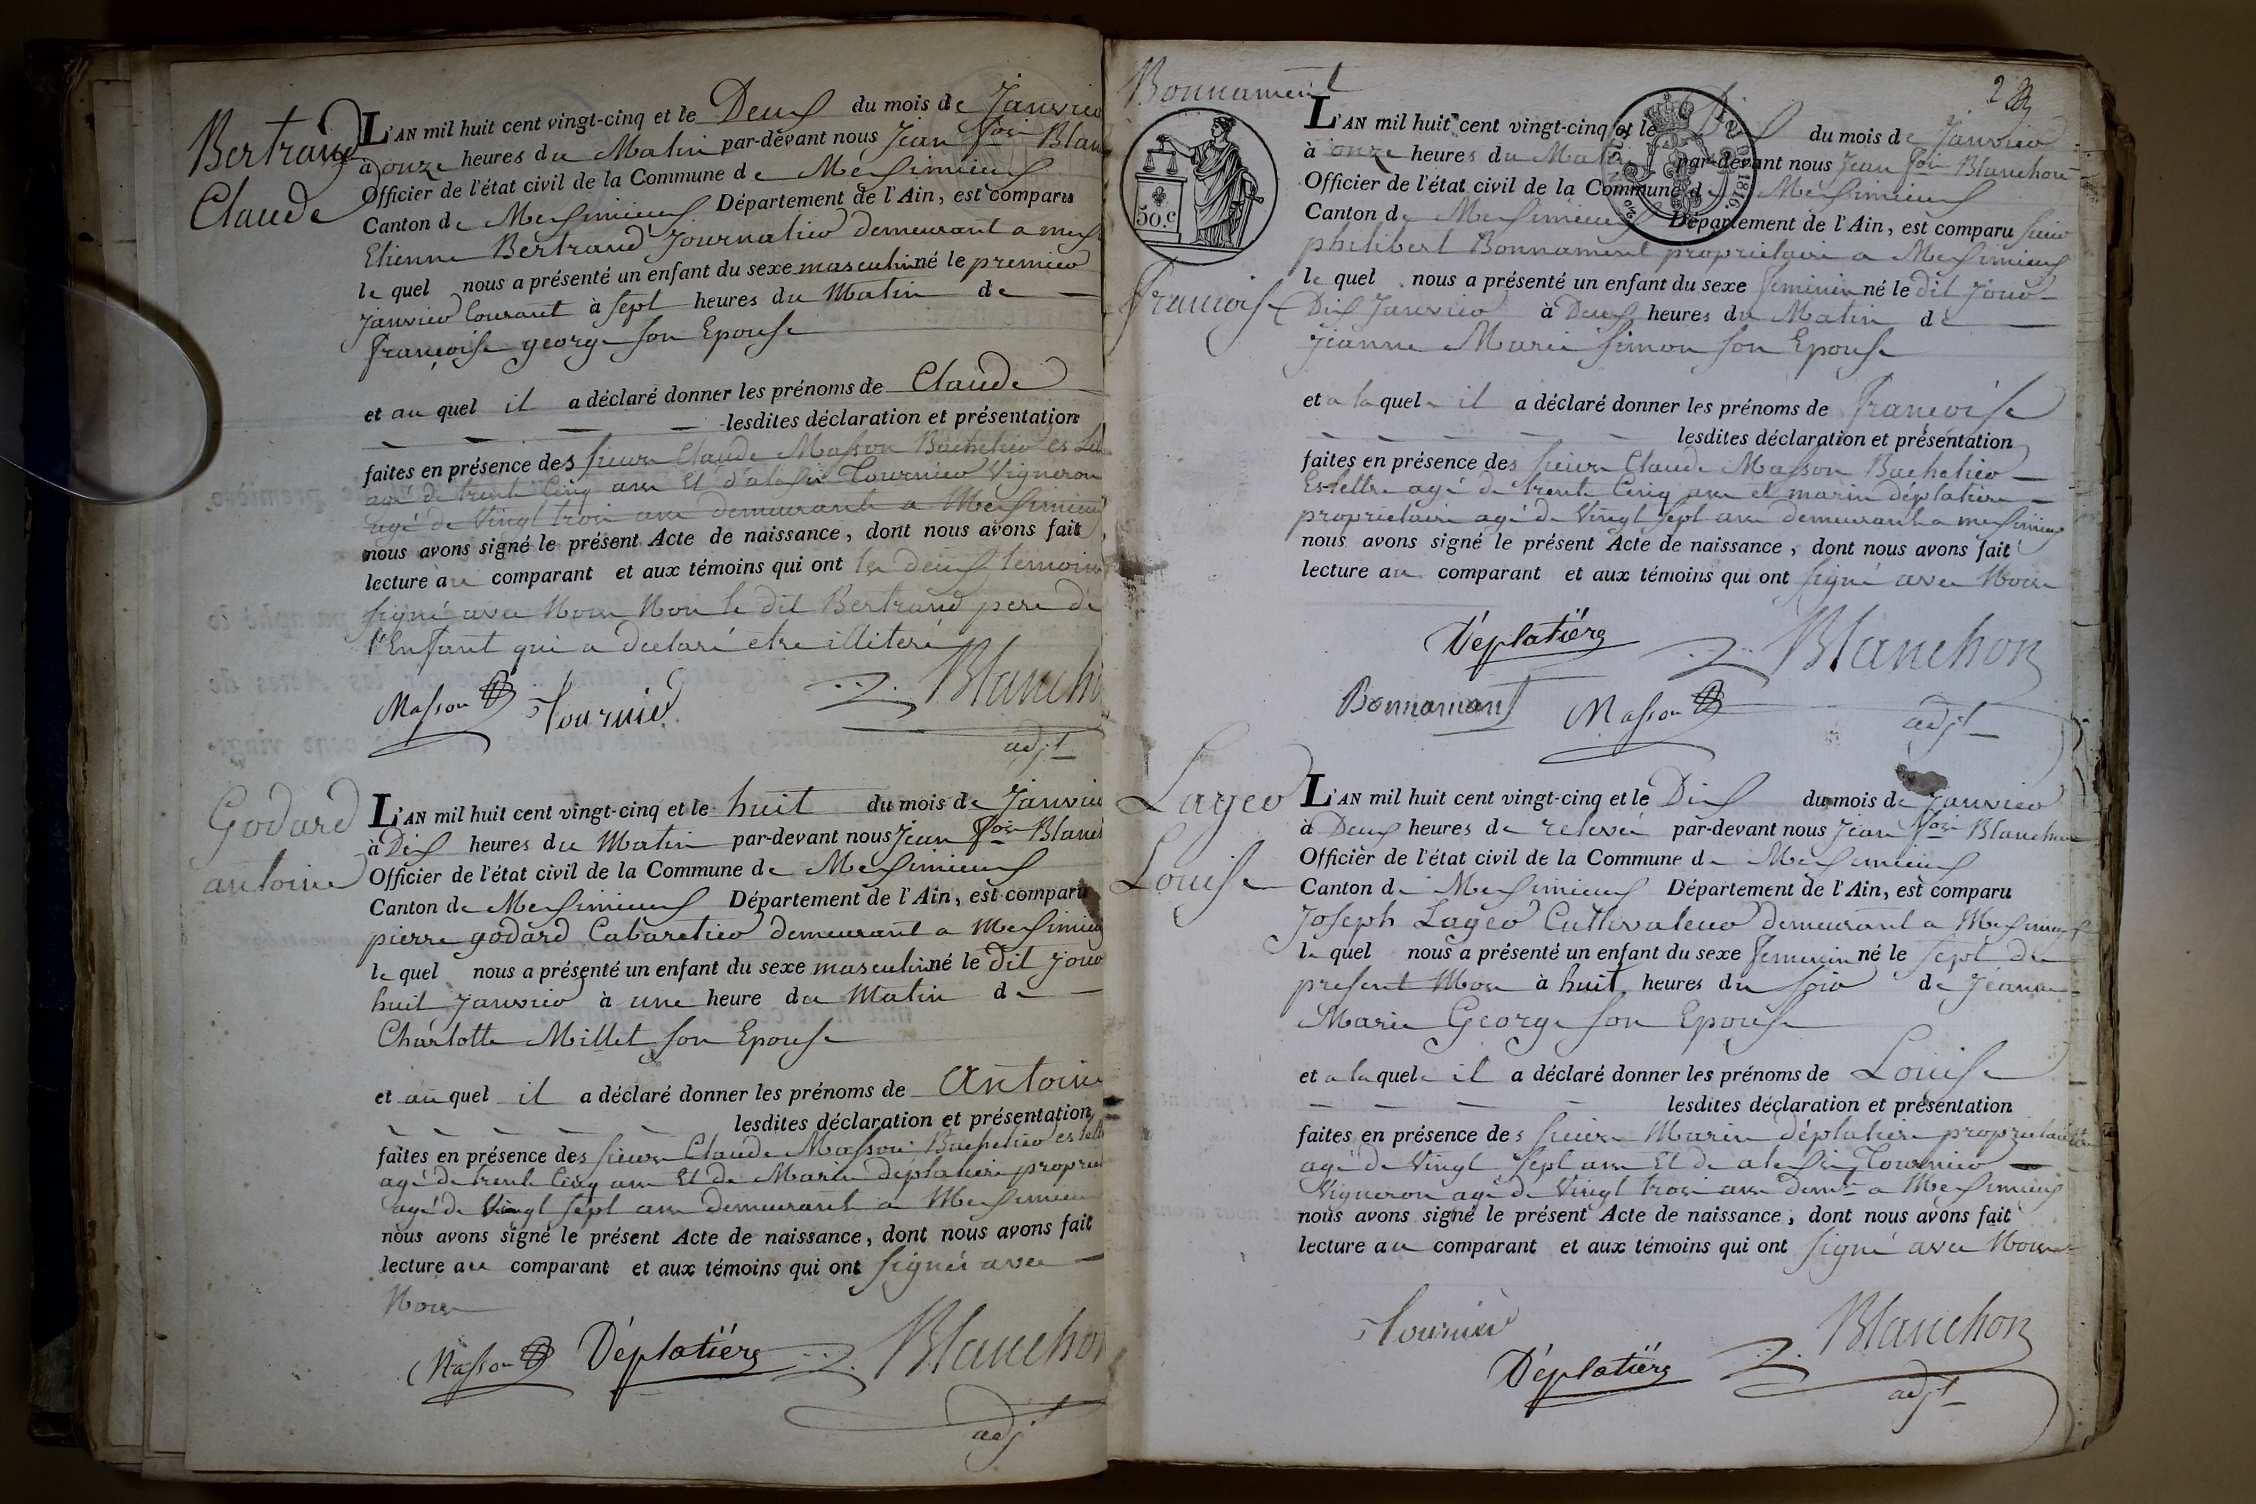 Bertrand
Claude
L'AN mil huit cent vingt-cinq et le Deux du mois de Janvier
à onze heures du Matin par-devant nous Jean fois Blan
Officier de l'état civil de la Commune de Meximieux
Canton de Meximieux Département de l'Ain, est comparu
Etienne Bertrand Journalier demeurant a mex
le quel nous a présenté un enfant du sexe masculin né le premier
Janvier Courant à Sept heures du Matin de
françoise george son Epouse
et au quel il a déclaré donner les prénoms de Claude
lesdites déclaration et présentation
faites en présence des sieurs Claude Masson Bachelier es Let
agé de trente Cinq ans Et d'alexis Tournier Vigneron
agé de Vingt trois ans demeurants a Meximieux
nous avons signé le présent Acte de naissance, dont nous avons fait
lecture au comparant et aux témoins qui ont les deux temoins
signé avec Nous Non le dit Bertrand pere de
l'Enfant qui a declaré etre illiteré
Masson Tournier Blancho
adjt
Godard
antoine
L'AN mil huit cent vingt-cinq et le huit du mois de Janvier
à Dix heures du Matin par-devant nous Jean fois Blanch
Officier de l'état civil de la Commune de Meximieux
Canton de Meximieux Département de l'Ain, est comparu
pierre godard Cabaretier demeurant a Meximieux
le quel nous a présenté un enfant du sexe masculin né le dit jour
huit Janvier à une heure du Matin de
Charlotte Millet son Epouse
et au quel il a déclaré donner les prénoms de Antoine
lesdites déclaration et présentation
faites en présence des sieurs Claude Masson Bachelier es lett
agé de trente Cinq ans Et de Marin déplatiere propriet
agé de Vingt Sept ans demeurants a Meximieux
nous avons signé le présent Acte de naissance, dont nous avons fait
lecture au comparant et aux témoins qui ont signés avec
Nous
Masson Déplatiére Blanchon
adjt
2
Bonnament
50 c.
françoise
L'AN mil huit cent vingt-cinq et le Dix du mois de Janvier
à onze heures du Matin par-devant nous Jean fois Blanchon
Officier de l'état civil de la Commune de Meximieux
Canton de Meximieux Département de l'Ain, est comparu sieur
philibert Bonnament proprietaire a Meximieux
le quel nous a présenté un enfant du sexe feminin né le dit Jour
Dix Janvier à Deux heures du Matin de
Jeanne Marie Simon son Epouse
et a la quele il a déclaré donner les prénoms de françoise
lesdites déclaration et présentation
faites en présence des sieurs Claude Masson Bachelier
Es-lettre agé de trente Cinq ans et marin déplatiere
proprietaire agé de Vingt Sept ans demeurants a meximieux
nous avons signé le présent Acte de naissance, dont nous avons fait
lecture au comparant et aux témoins qui ont signé avec Nous
Déplatiére Blanchon
Bonnamant Masson adjt
Lager
Louise
L'AN mil huit cent vingt-cinq et le Dix du mois de Janvier
à Deux heures de relevée par-devant nous Jean fois Blanchon
Officier de l'état civil de la Commune de Meximieux
Canton de Meximieux Département de l'Ain, est comparu
Joseph Lager Cultivateur demeurant a Meximieux
le quel nous a présenté un enfant du sexe feminin né le Sept du
present Mois à huit heures du soir de Jeanne
Marie George son Epouse
et a la quele il a déclaré donner les prénoms de Louise
lesdites déclaration et présentation
faites en présence des sieurs Marin déplatiere proprietaire
agé de Vingt Sept ans Et de alexis Tournier
Vigneron agé de Vingt trois ans demts a Meximieux
nous avons signé le présent Acte de naissance, dont nous avons fait
lecture au comparant et aux témoins qui ont signé avec Nous
Tournier
Déplatiére Blanchon
adjt